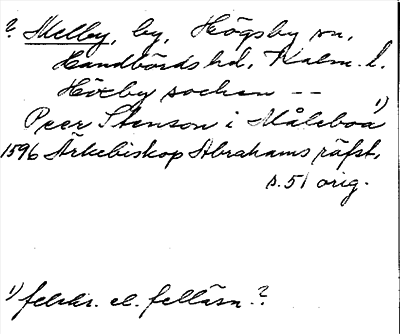 ? Melby, by, Högsby sn,
Handbörds hd, Kalm. l.
Högby sochen --
Peer Stenson i Måleboa 1)
1596 Ärkebiskop Abrahams räfst,
s. 51 orig.
1) felskr. el. felläsn.?